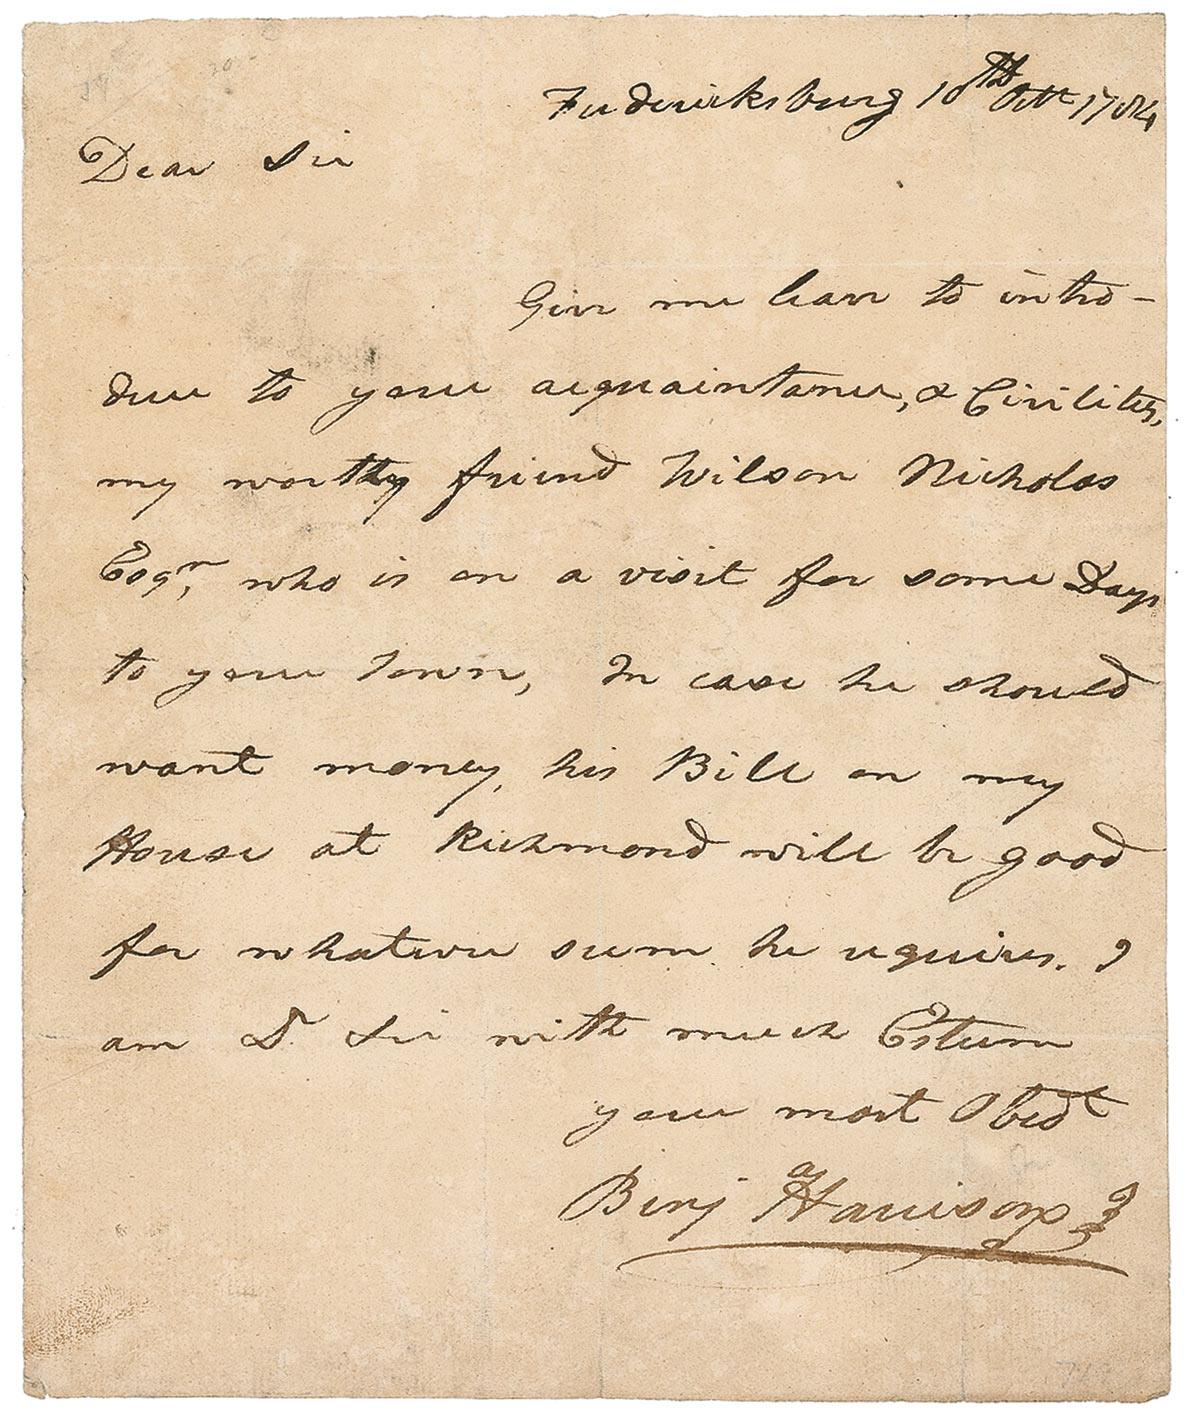 Fredericksburg 10th Octr 1784
Dear Sir
Give me leave to intro-
duce to your acquaintance, & Civilities,
my worthy friend Wilson Nicholas
Esqr, who is on a visit for some Days
to your Town, In case he should
want money, his Bill on my
House at Richmond will be good
for whatever sum he requires. I
am Dr Sir with much Esteem
your most Obedt
Benja Harrison